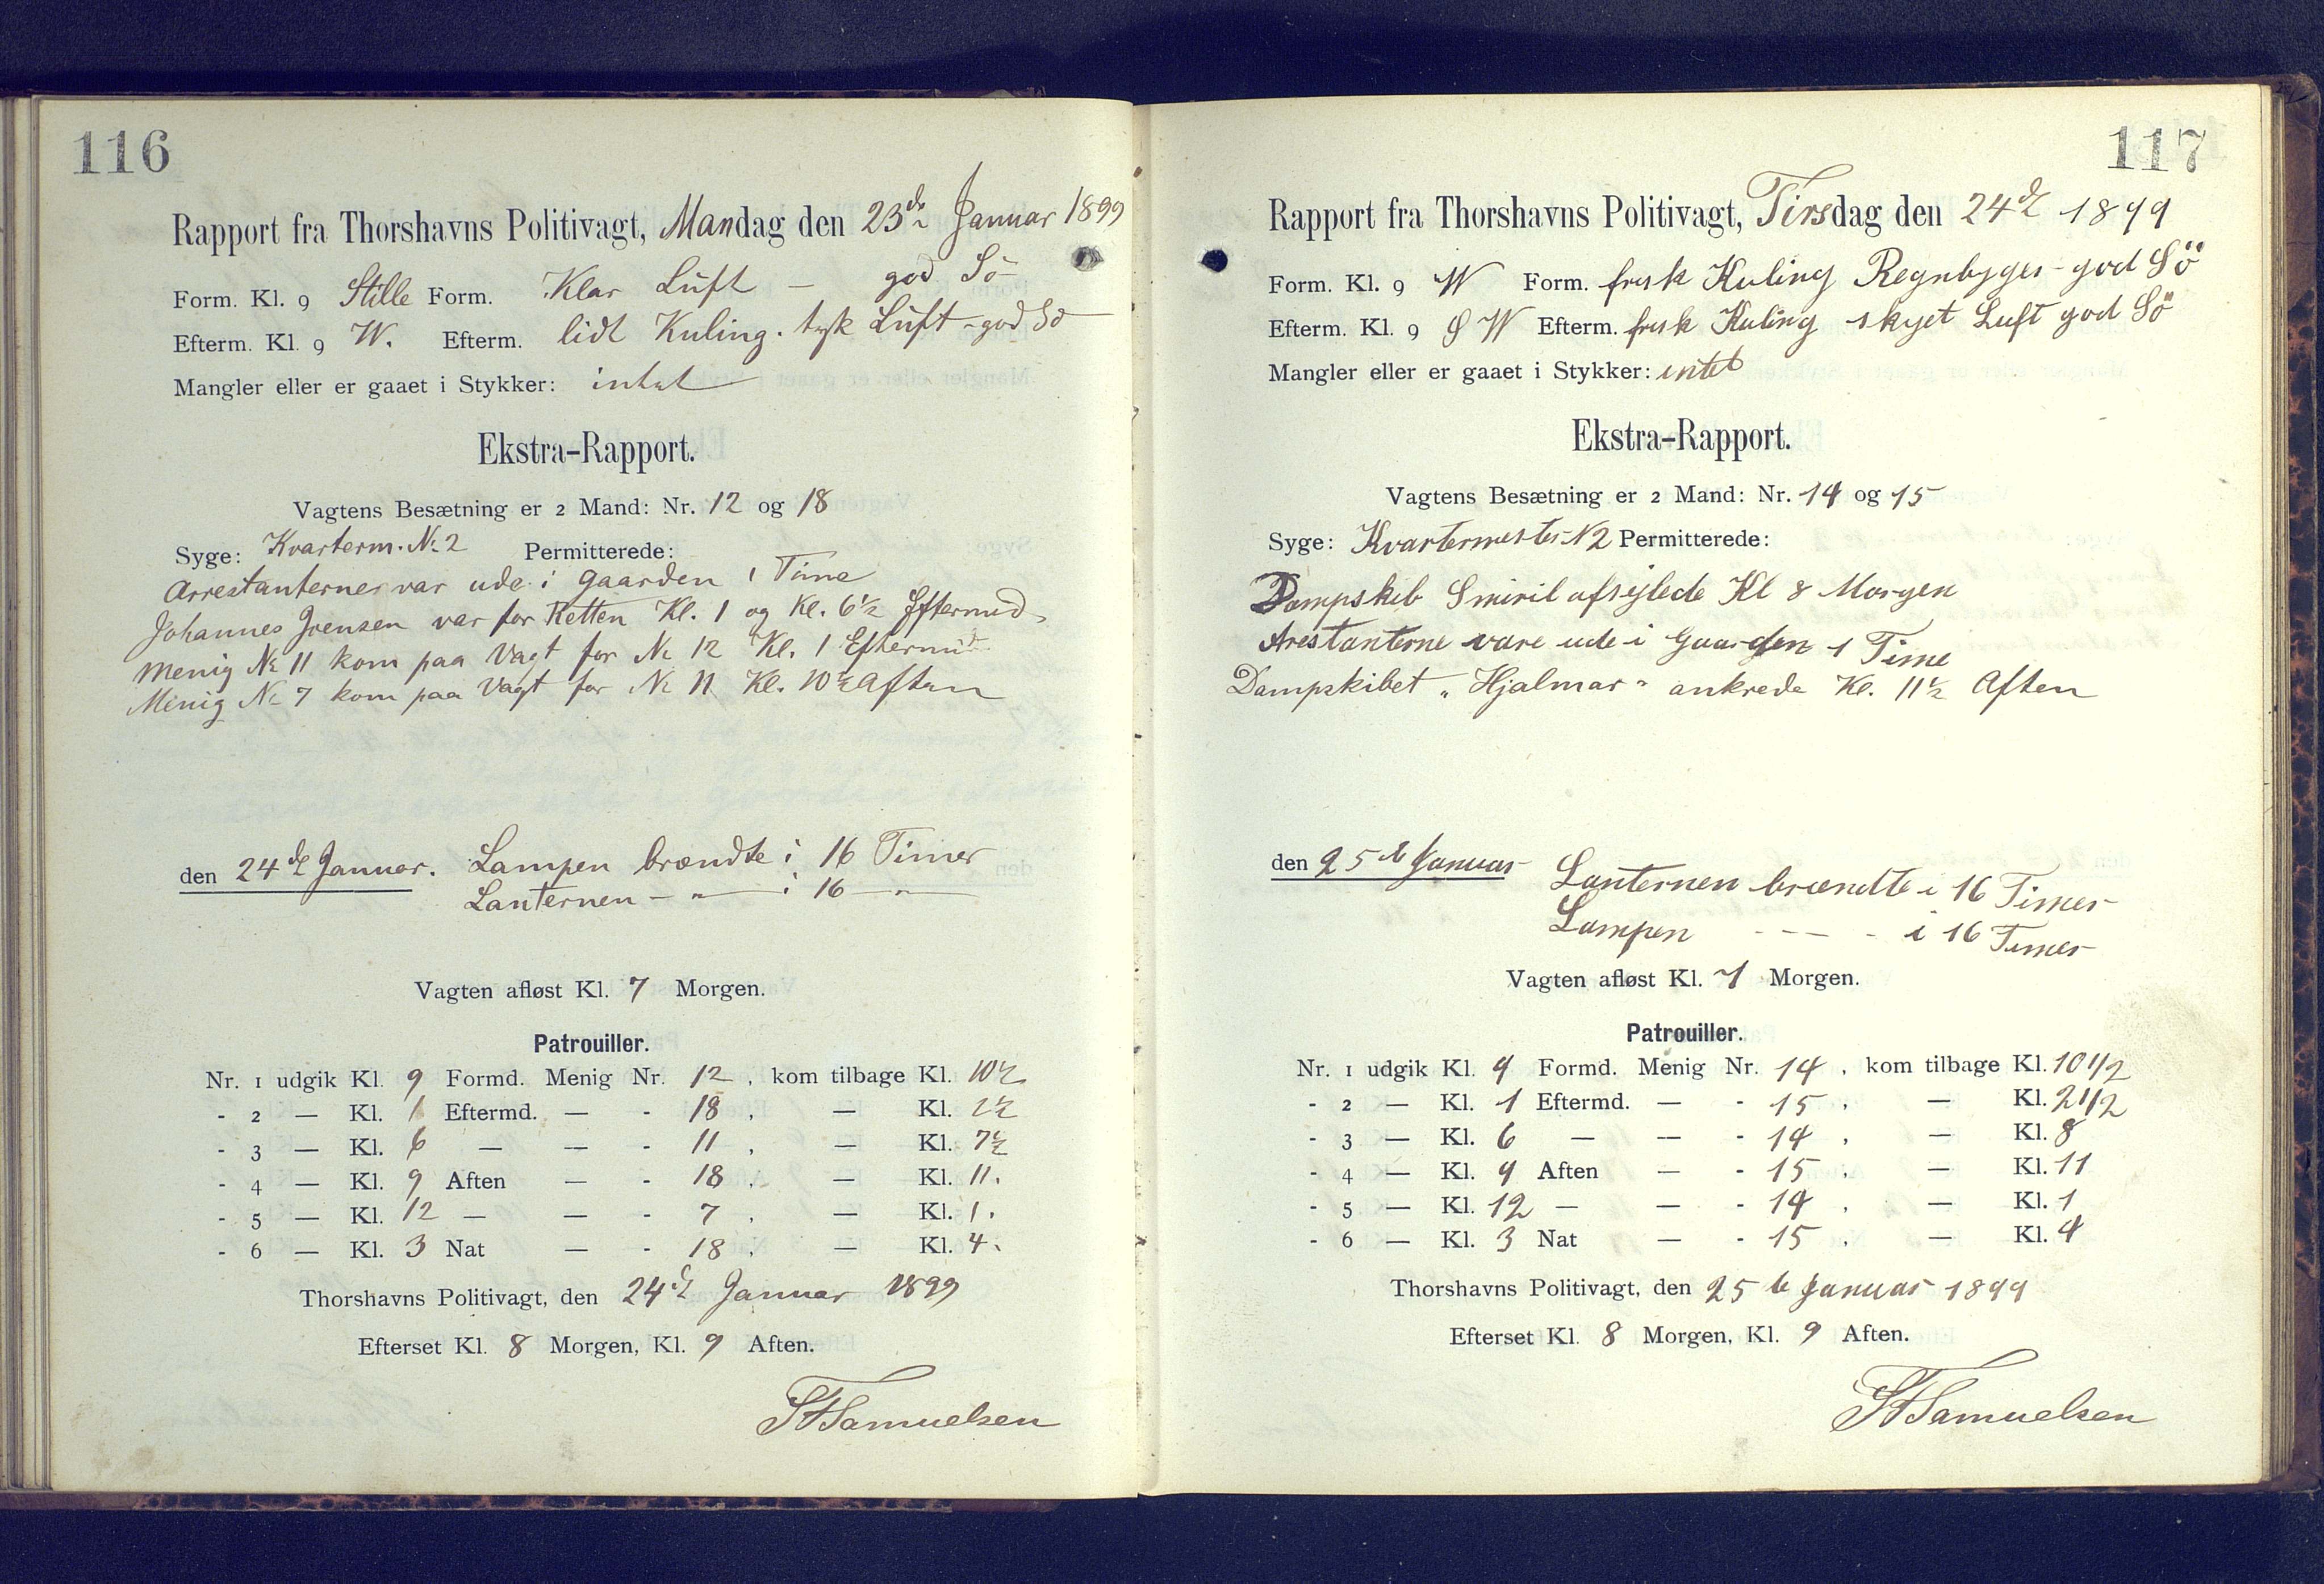 116
Rapport fra Thorshavns Politivagt, Mandag den 23de Januar 1899
Form. Kl. 9 Stille Form. Klar Luft – god Sö
Efterm. Kl. 9 W. Efterm. lidt Kuling. tyk Luft – god Sö
Mangler eller er gaaet i Stykker: intet
Ekstra-Rapport.
Vagtens Besætning er 2 Mand: Nr. 12 og 18
Syge: Kvarterm. No 2 Permitterede:
Arrestanterne var ude i Gaarden 1 Time
Johannes Joensen var for Retten Kl. 1 og Kl. 6½ Eftermd.
Menig No 11 kom paa Vagt for No 12 Kl. 1 Eftermid
Menig No 7 kom paa Vagt for No 11 Kl. 10½ Aften
den 24de Januar. Lampen brændte i 16 Timer
Lanternen – " — i 16 — "
Vagten afløst Kl. 7 Morgen.
Patrouiller.
Nr. 1 udgik Kl. 9 Formd. Menig Nr. 12, kom tilbage Kl. 10½
- 2 — Kl. 1 Eftermd. — - 18, — Kl. 2½
- 3 — Kl. 6 — — - 11, — Kl. 7½
- 4 — Kl. 9 Aften — - 18, — Kl. 11.
- 5 — Kl. 12 — — - 7, — Kl. 1.
- 6 — Kl. 3 Nat — - 18, — Kl. 4.
Thorshavns Politivagt, den 24de Januar 1899
Efterset Kl. 8 Morgen, Kl. 9 Aften.
Samuelsen
117
Rapport fra Thorshavns Politivagt, Tirsdag den 24de 1899
Form. Kl. 9 W Form. frisk Kuling Regnbyger – god Sö
Efterm. Kl. 9 S W Efterm. frisk Kuling skyet Luft god Sö
Mangler eller er gaaet i Stykker: intet
Ekstra-Rapport.
Vagtens Besætning er 2 Mand: Nr. 14 og 15
Syge: Kvartermester N 2 Permitterede:
Dampskib Smiril afsejlede Kl 8 Morgen
Arestanterne vare ude i Gaarden 1 Time
Dampskibet "Hjalmar" ankrede Kl. 11½ Aften
den 25de Januar Lanternen brændte i 16 Timer
Lampen - — — - i 16 Timer
Vagten afløst Kl. 7 Morgen.
Patrouiller.
Nr. 1 udgik Kl. 9 Formd. Menig Nr. 14, kom tilbage Kl. 10 1/2
- 2 — Kl. 1 Eftermd. — - 15, — Kl. 2 1/2
- 3 — Kl. 6 — — - 14, — Kl. 8
- 4 — Kl. 9 Aften — - 15, — Kl. 11
- 5 — Kl. 12 — — - 14, — Kl. 1
- 6 — Kl. 3 Nat — - 15, — Kl. 4
Thorshavns Politivagt, den 25de Januar 1899
Efterset Kl. 8 Morgen, Kl. 9 Aften.
Samuelsen